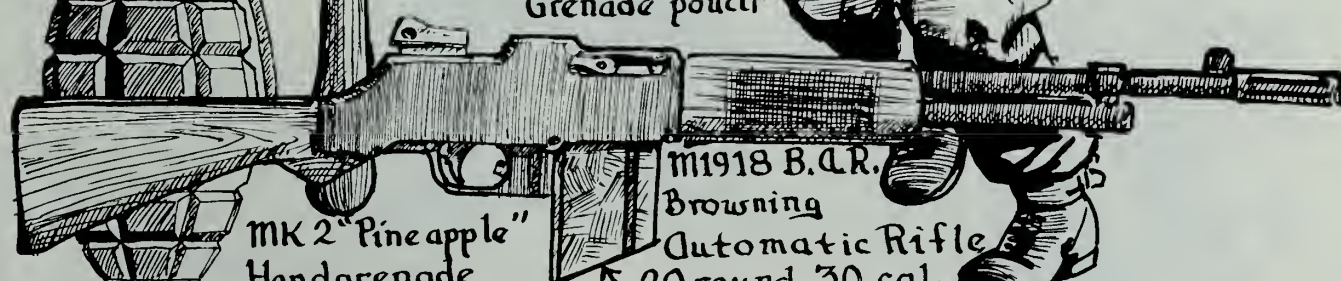 Grenade pouch
M1918 B.A.R.
Browning
Automatic Rifle
20 round .30 cal.
MK 2 "Pineapple"
Handgrenade